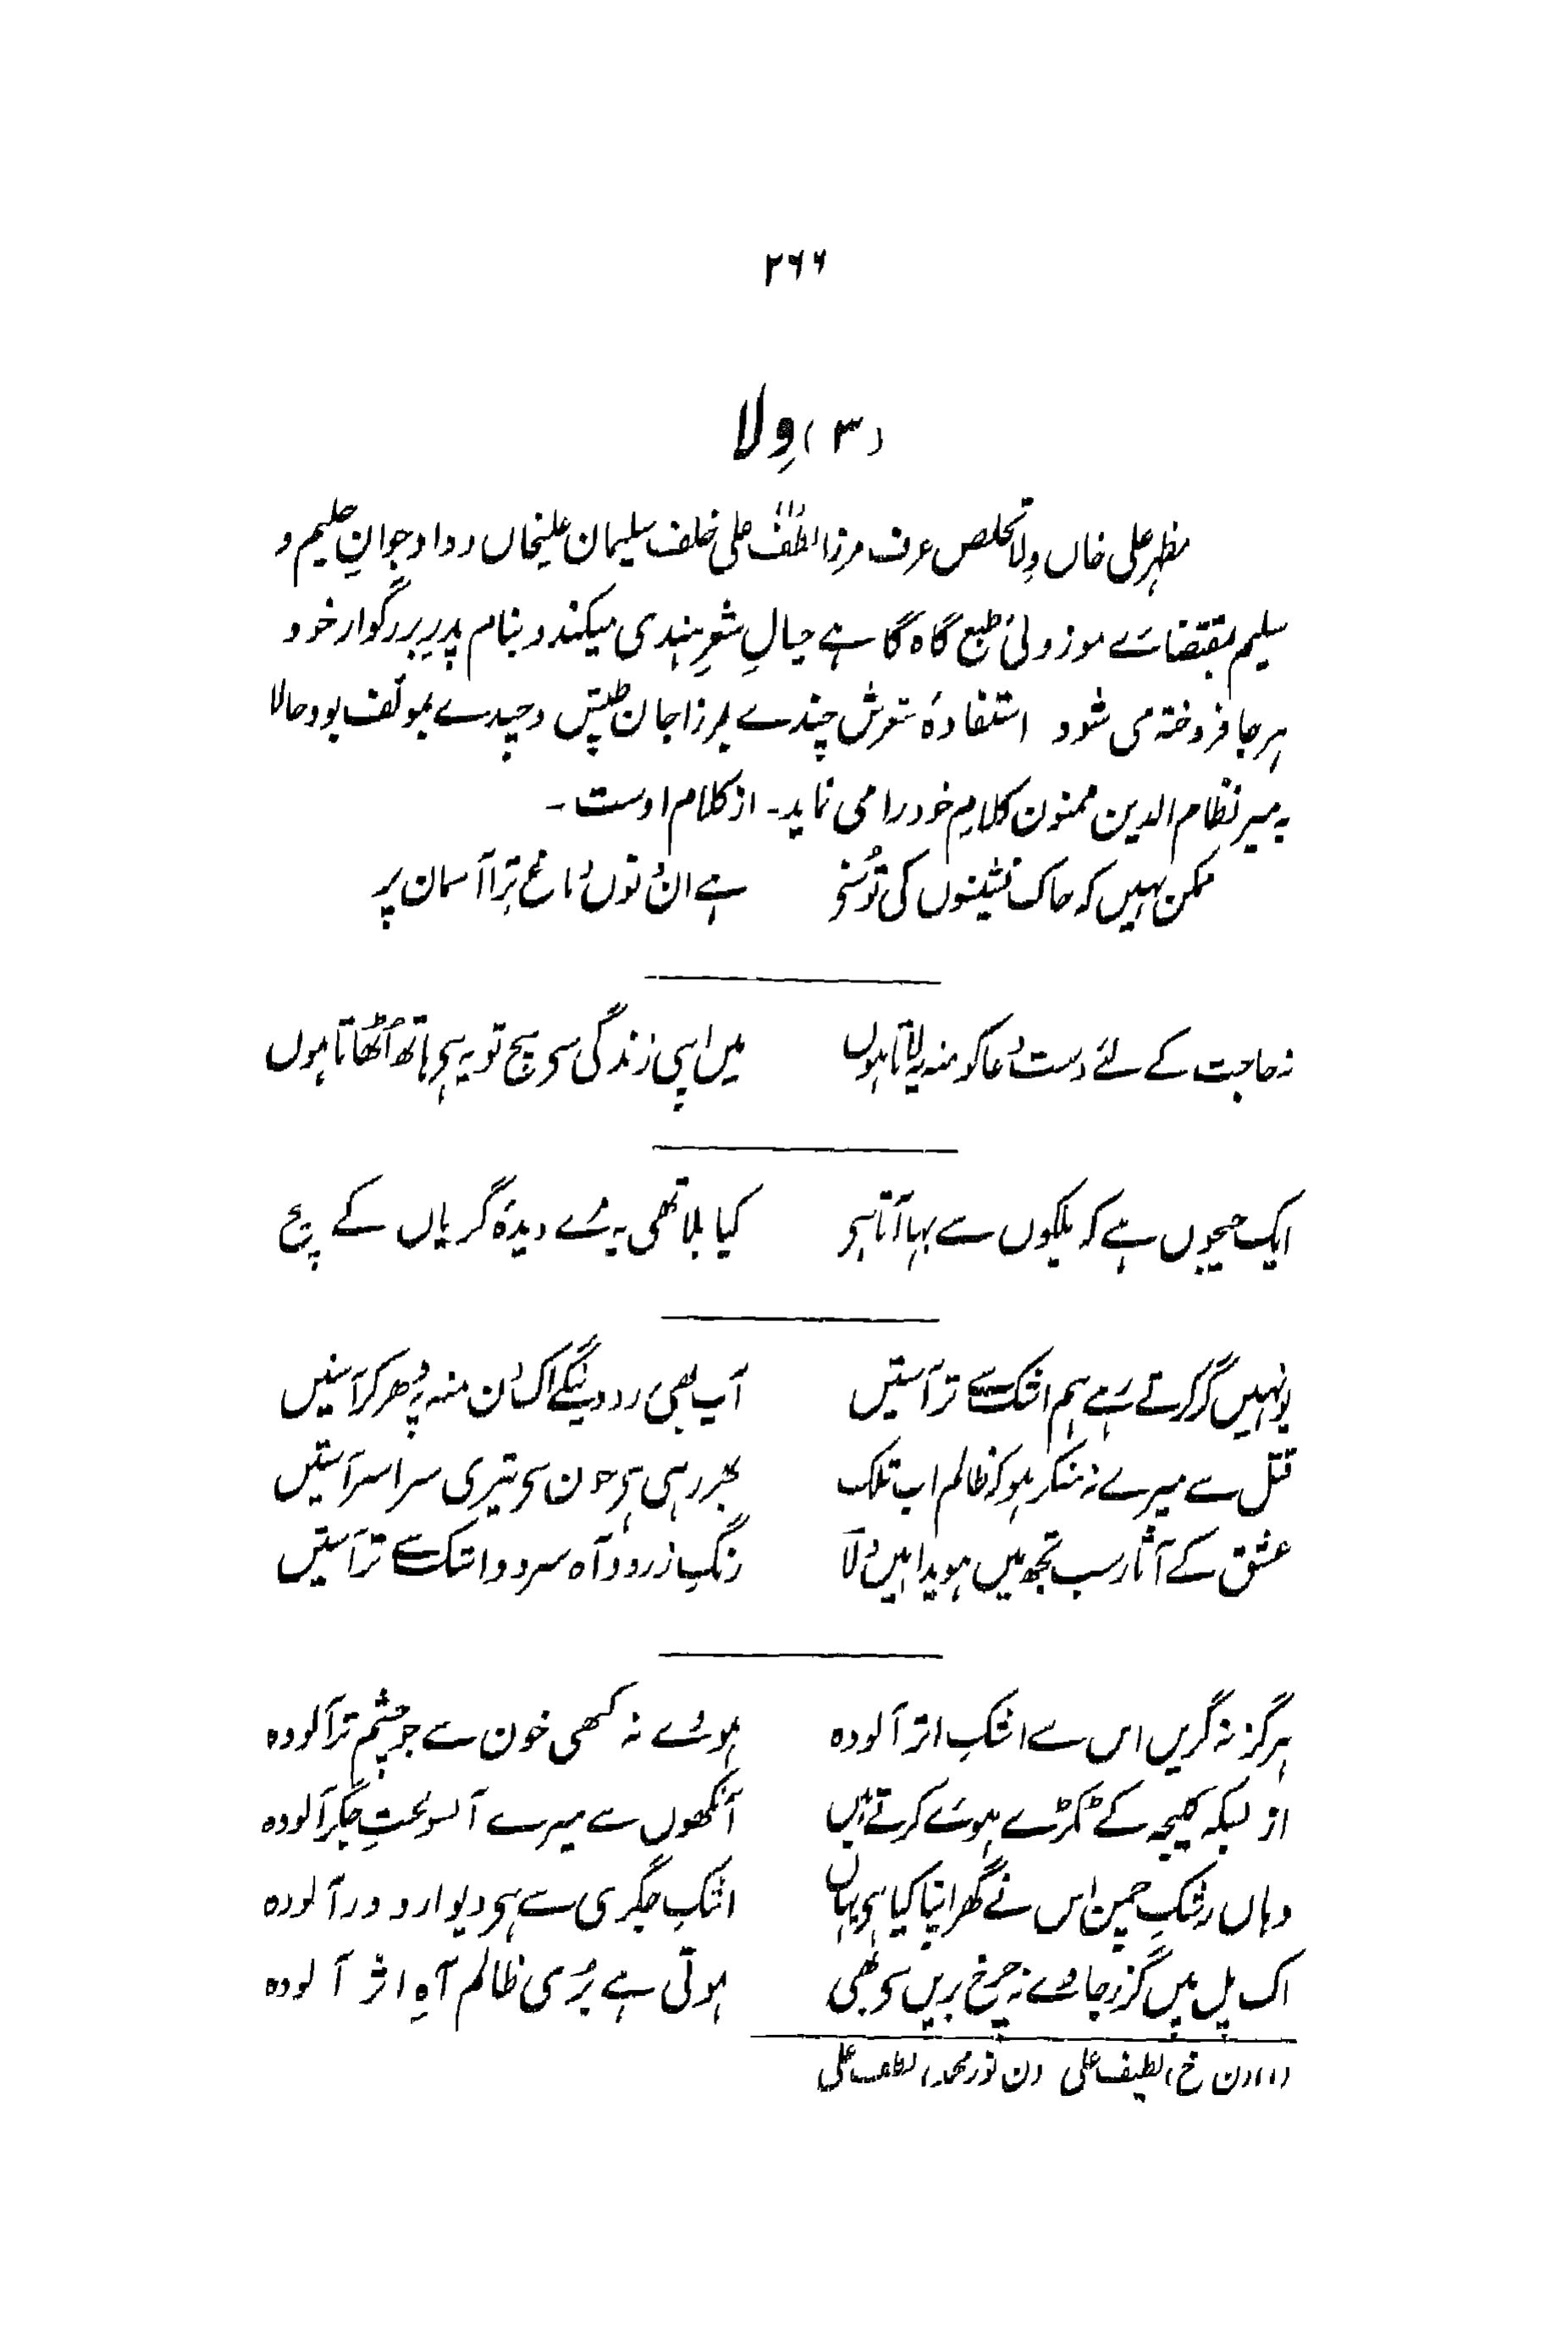 ۲۶۶
(۳) وِلا
مظہر علی خاں وِلا تخلص عرف مرزا لطف علی خلف سلیمان علیخاں وداد جوانِ حلیم و
سلیم بمقتضائے موزونیٔ طبع گاہ گاہے خیالِ شعرِ ہندی میکند و بنام پدرِ بزرگوار خود
ہر جا فروختہ می شود استفادۂ شعرش چندے بمرزا جان طپش و چندے بمولّف بود حالا
بہ میر نظام الدین ممنون کلامِ خود را می نماید۔ از کلام اوست۔
ممکن نہیں کہ خاک نشینوں کی تُو سُنے ہے ان دنوں دماغ تِرا آسمان پر
نہ حاجت کے لئے دست دُعا کو منہ پہ لاتا ہوں میں اپنی زندگی سے سچ تو یہ ہے ہاتھ اُٹھاتا ہوں
ایک جیحوں ہے کہ پلکوں سے بہا آتا ہے کیا بلا تھی یہ مرے دیدۂ گریاں کے بیچ
یونہیں گر کرتے رہے ہم اشک سے تر آستیں آپ بھی رو دینگے اک دن منہ پہ دھر کر آستیں
قتل سے میرے نہ منکر ہو کہ ظالم اب تلک بھر رہی ہے خون سے تیری سراسر آستیں
عشق کے آثار سب تجھ میں ہویدا ہیں وِلا رنگِ زرد و آہ سرد و اشک سے تر آستیں
ہرگز نہ گریں اس سے اشکِ اثر آلودہ ہووے نہ کبھی خون سے جو چشمِ تر آلودہ
از بسکہ کلیجہ کے ٹکڑے ہوئے کرتے ہیں آنکھوں سے میرے آنسو لختِ جگر آلودہ
وہاں رشکِ چمن اُس نے گھر اپنا کیا ہے یہاں اشکِ جگری سے ہے دیوار و در آلودہ
اک پل میں گزر جاوے نہ چرخِ بریں سے بھی ہوتی ہے بُری ظالم آہِ اثر آلودہ
(۱) (ن خ) لطیف علی (ن نور محمد) لطف علی